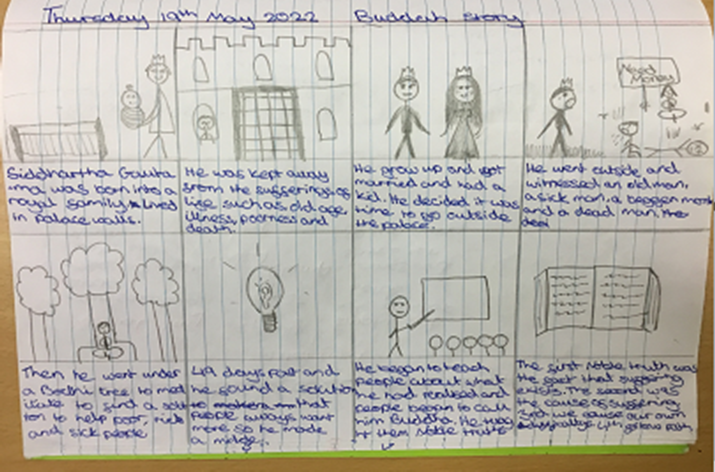 Thursday 19th May 2022 Buddah story
Siddhartha Gauta
ma was born into a
royal family & lived
in palace walls.
He was kept away
from the sufferings of
life such as old age,
illness, poorness and
death.
He grew up and got
married and had a
kid. He decided it was
time to go outside
the palace.
Need
Money
He went outside and
witnessed an old man,
a sick man, a beggen
and a dead man. the
Then he went under
a Bodhi tree to med
itate to find a solu
tion to help poor, sick
and sick people
49 days past and
he found a solution
that
people always want
more so he made
a
He began to teach
people about what
he had realised and
people began to call
him Buddha. He
4 them Noble truths
The first Noble truth was
the fact that suffering
exists. The second was
the cause of suffering
3rd we cause our own
4th